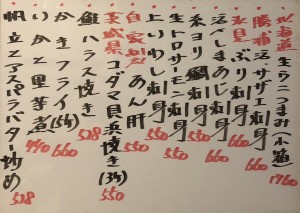 北海道 生ウニつまみ(小箱) 1760
勝浦 活サザエ刺身 660
氷見 ぶり刺身 660
活〆しまあじ刺身 660
糸ヨリ鯛刺身 550
生トロサーモン刺身 550
上いわし刺身 550
自家製 あん肝 550
茨城県 コダマ貝浜焼き(3ヶ) 550
鮭ハラス焼き 528
かきフライ(5ヶ) 660
いかと里芋煮 440
帆立とアスパラバター炒め 528